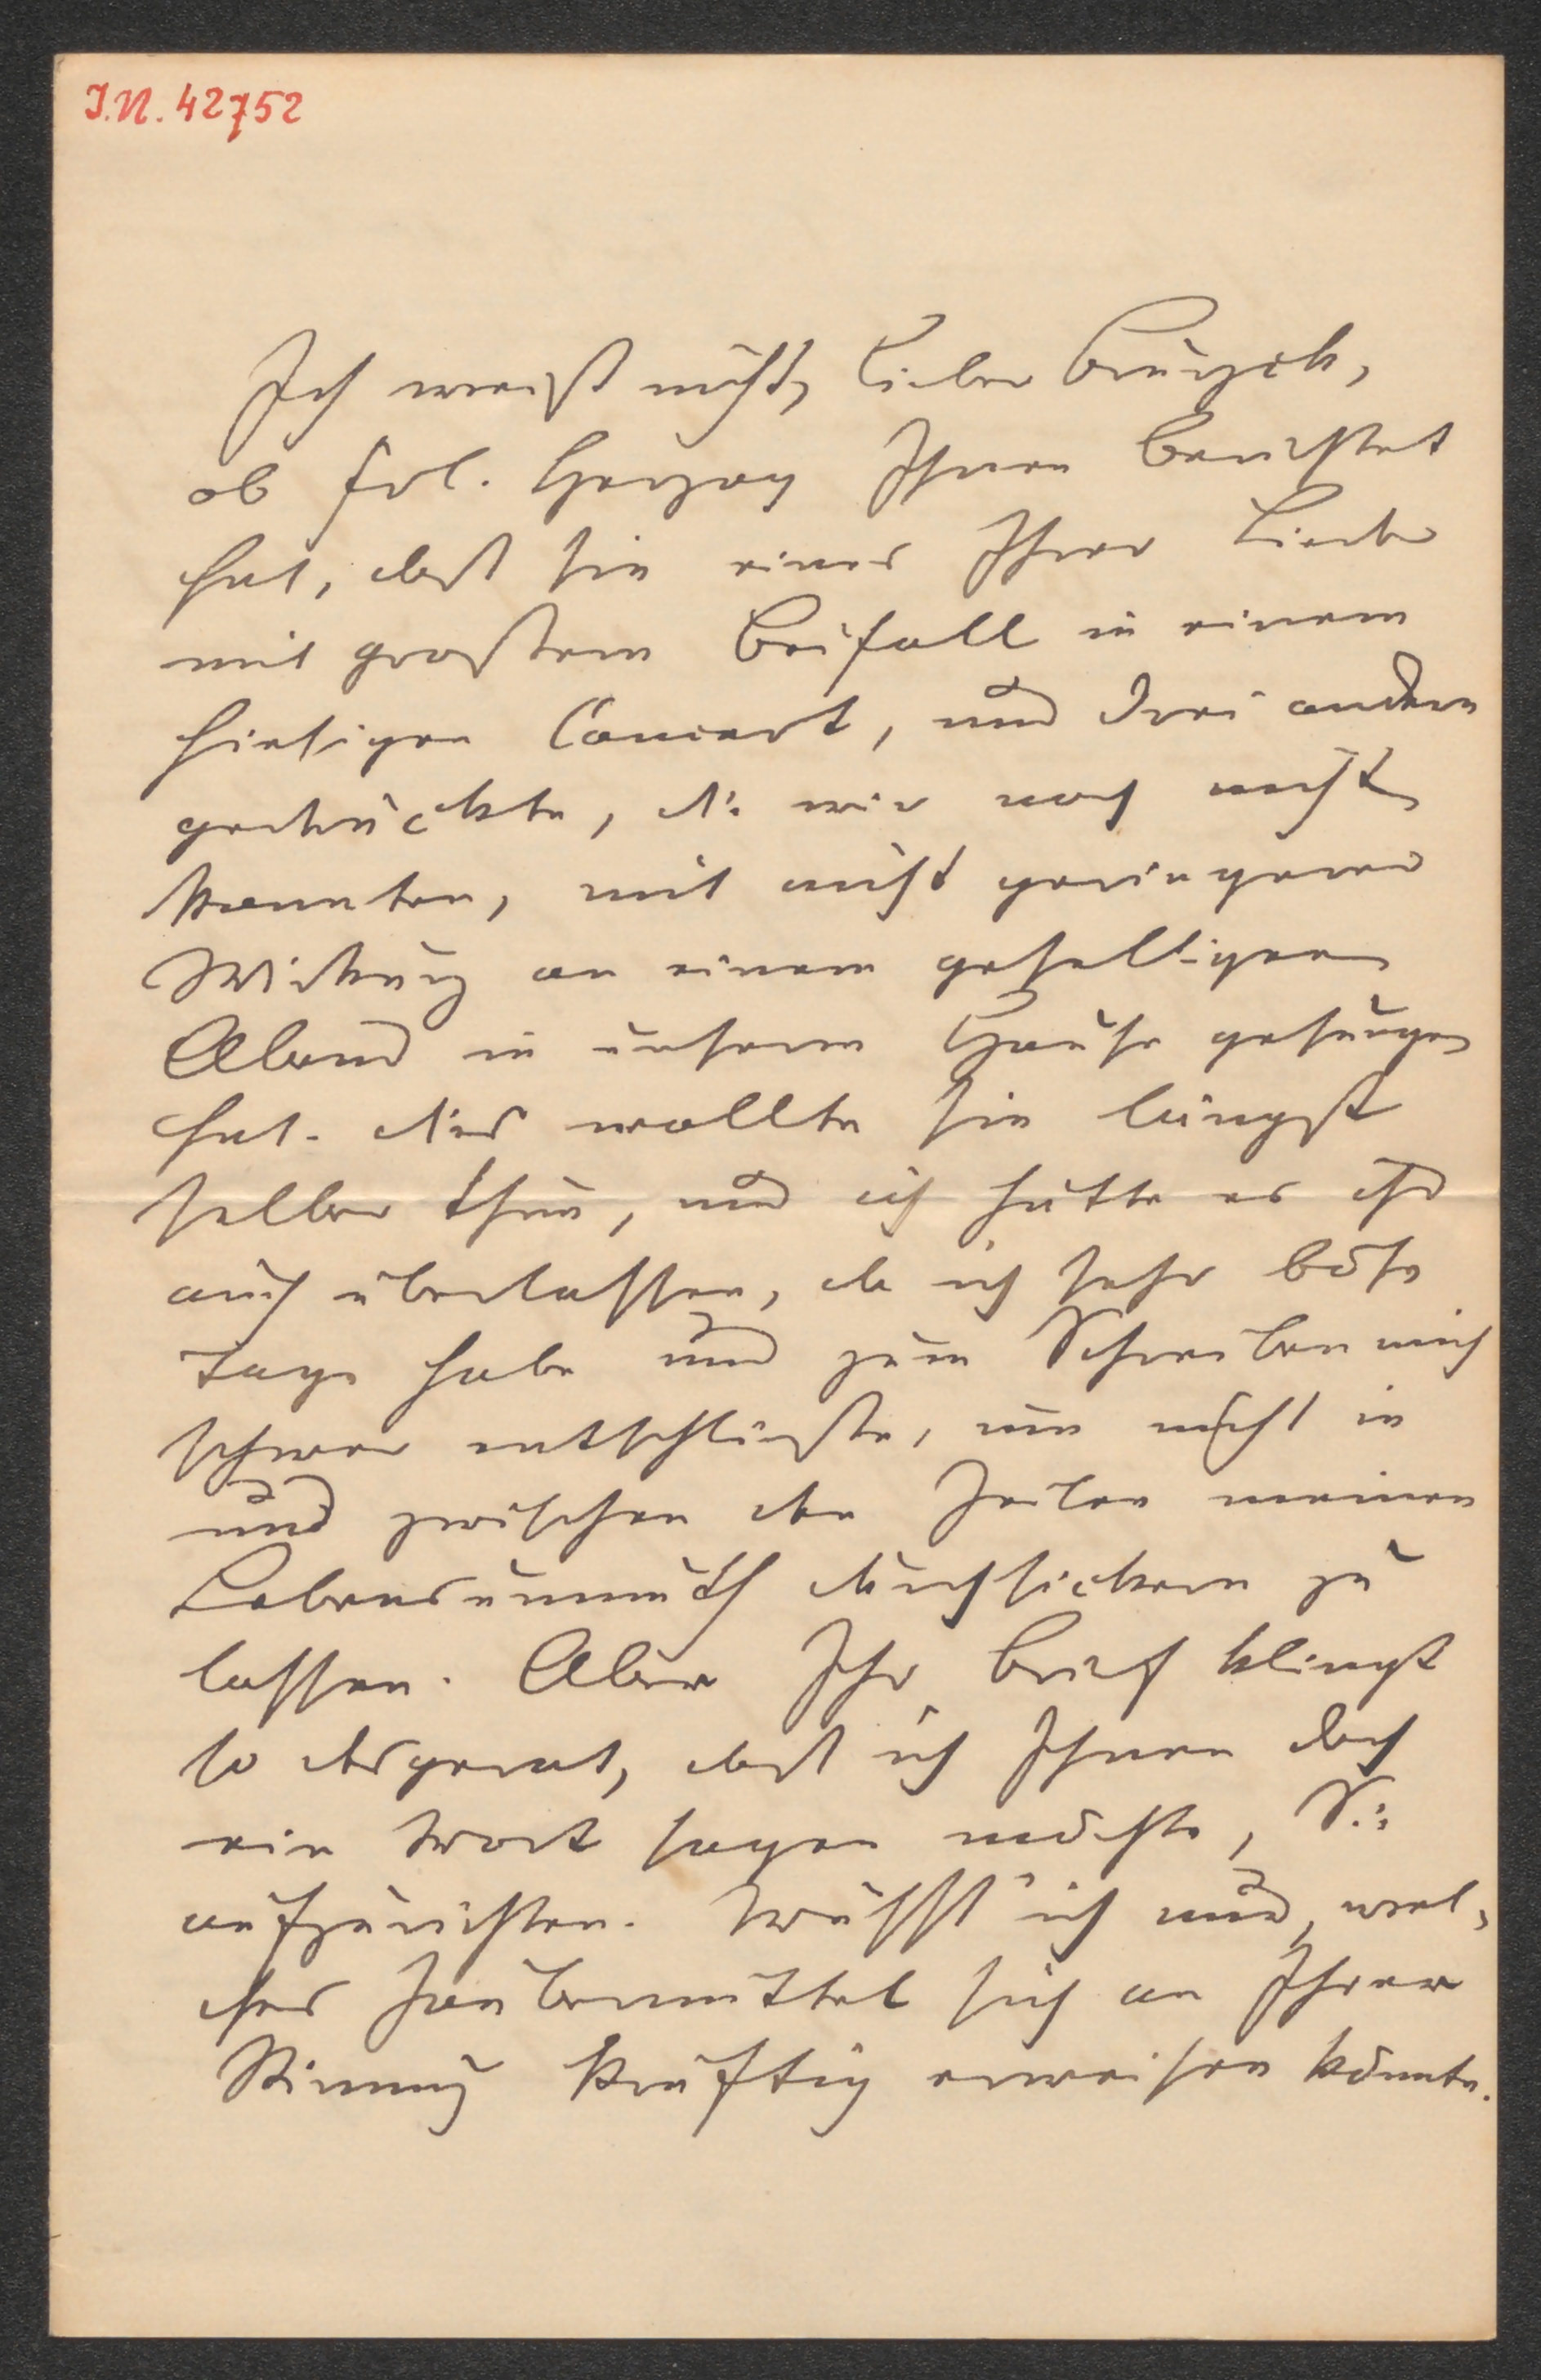 I.N. 42752
Ich weiß nicht, lieber
ob Frl. Herzog Ihnen berichtet
hat, daß sie eines Ihrer Lieder
mit großem Beifall in einem
hiesigen Concert, und drei andere
gedruckte, die wir noch nicht
kannten, mit nicht geringerer
Wirkung an einem geselligen
Abend in unserm Hause gesungen
hat. Dies wollte sie längst
selber thun, und ich hätte es ihr
auch überlassen, da ich sehr böse
Tage habe und zum Schreiben mich
schwer entschließe, um nicht in
und zwischen den Zeilen meinen
Lebensunmuth durchsickern zu
lassen. Aber Ihr Brief klingt
so degoutirt, daß ich Ihnen doch
ein Wort sagen möchte, Sie
aufzurichten. Wüßt' ich nur, wel-
ches Zaubermittel sich an Ihrer
Stimmung kräftig erweisen könnte.